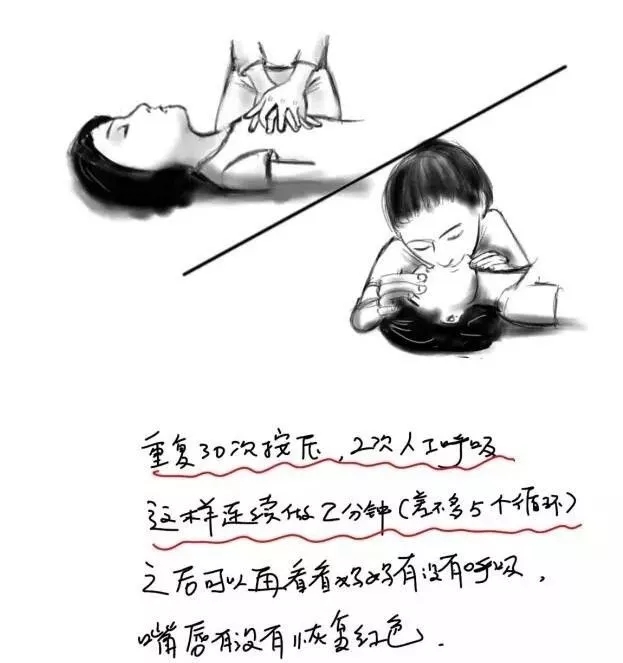 重复30次按压，2次人工呼吸
这样连续做2分钟（差不多5个循环）
之后可以再看看妈妈有没有呼吸，
嘴唇有没有恢复红色．